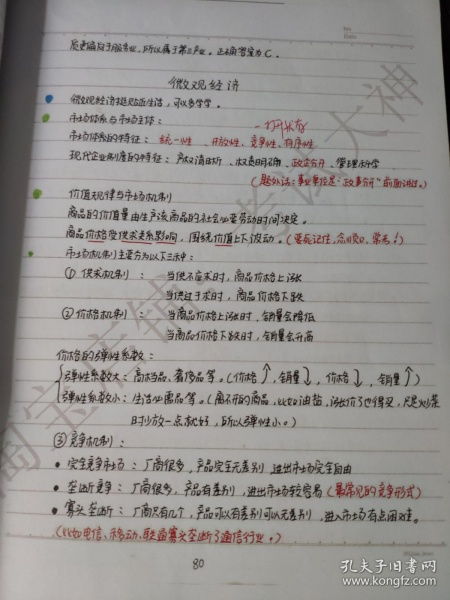 质更偏及于服务业，所以属于第三产业。正确答案为C。
微观经济
微观经济挺贴近生活，可以多学学。
市场体系与市场主体：
市场体系的特征：统一性、开放性、竞争性、有序性
现代企业制度的特征：产权清晰、权责明确、政企分开、管理科学
（题外话：事业单位是“政事分开”前面讲过。）
价值规律与市场机制
商品的价值量由生产该商品的社会必要劳动时间决定。
商品价格受供求关系影响，围绕价值上下波动。（要死记住，必须，常考！）
市场机制主要分为以下三种：
① 供求机制： 当供不应求时，商品价格上涨
当供过于求时，商品价格下跌
② 价格机制： 当商品价格上涨时，销量会降低
当商品价格下跌时，销量会升高
价格的弹性系数：
弹性系数大：高档品、奢侈品等。（价格↑，销量↓，价格↓，销量↑）
弹性系数小：生活必需品等。（离不开的商品，比如油盐，涨价了也得买，只是炒菜
时少放一点就好，所以弹性小。）
③ 竞争机制：
• 完全竞争市场：厂商很多，产品完全无差别，进出市场完全自由
• 垄断竞争：厂商很多，产品有差别，进出市场较容易（最常见的竞争形式）
• 寡头垄断：厂商只有几个，产品可以有差别可以无差别，进入市场有点困难。
（比如电信、移动、联通寡头垄断了通信行业。）
80
孔夫子旧书网